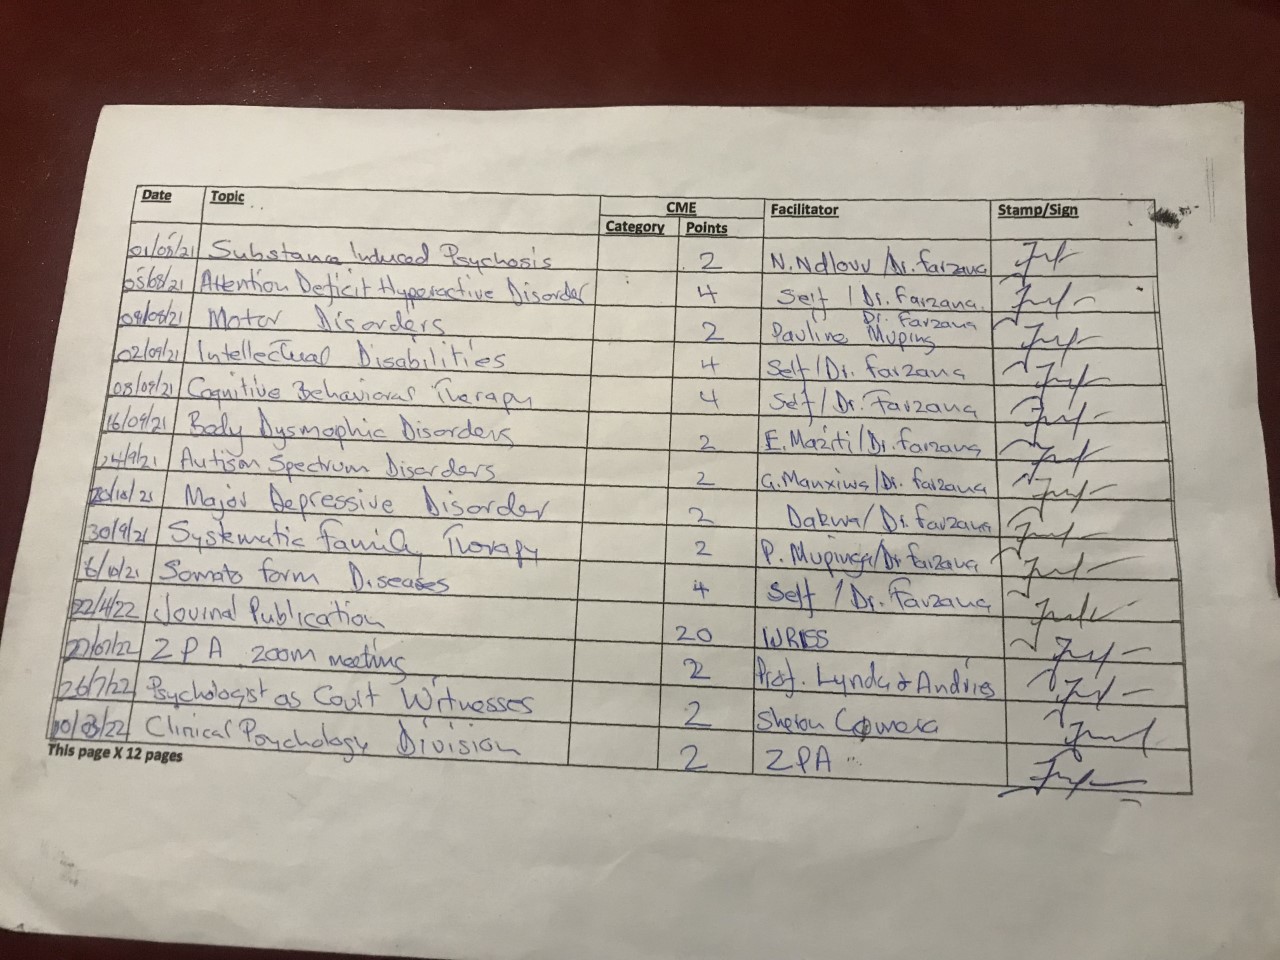 Date Topic CME Facilitator Stamp/Sign
Category Points
01/08/21 Substance Induced Psychosis 2 N.Ndlovu/Dr. farzana
05/08/21 Attention Deficit Hyporactive Disorder 4 Self / Dr. Farzana.
09/08/21 Motor Disorders 2 Pauline Muping Dr. Farzana
02/09/21 Intellectual Disabilities 4 Self/Dr. farzana
08/09/21 Cognitive Behavioral Therapy 4 Self/Dr. Farzana
16/09/21 Body Dysmophic Disorders 2 E. Maziti/Dr. farzana
24/9/21 Autism Spectrum Disorders 2 G.Manxiwa/Dr. farzana
20/10/21 Major Depressive Disorder 2 Dakwa/Dr. farzana
30/9/21 Systematic family Therapy 2 P. Mupinga/Dr farzana
6/10/21 Somato form Diseases 4 Self / Dr. Farzana
22/4/22 Journal Publication 20 WRISS
27/07/22 ZPA zoom meeting 2 Prof. Lynda & Andries
26/7/22 Psychologist as Court Witnesses 2 Sheron
10/03/22 Clinical Psychology Division 2 ZPA
This page X 12 pages